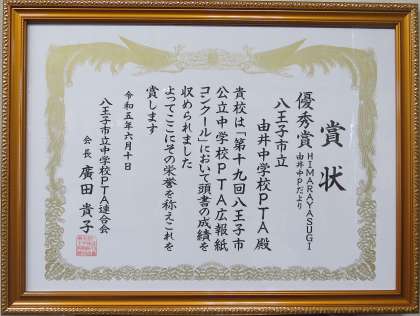 賞状
優秀賞
HIMARAYASUGI
由井中Pだより
八王子市立
由井中学校PTA殿
貴校は「第十九回八王子市
公立中学校PTA広報紙
コンクール」において頭書の成績を
収められました
よってここにその栄誉を称えこれを
賞します
令和五年六月十日
八王子市立中学校PTA連合会
会長 廣田貴子